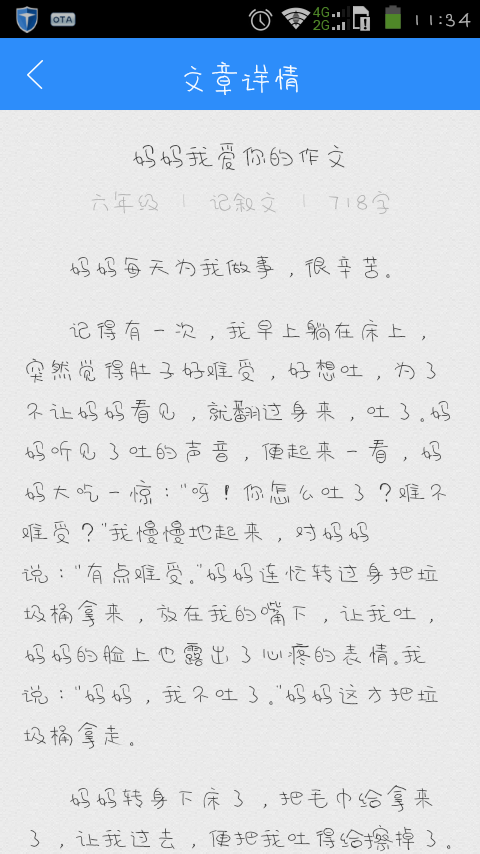 OTA 4G 2G 11:34
文章详情
妈妈我爱你的作文
六年级 | 记叙文 | 718字
妈妈每天为我做事，很辛苦。
记得有一次，我早上躺在床上，
突然觉得肚子好难受，好想吐，为了
不让妈妈看见，就翻过身来，吐了。妈
妈听见了吐的声音，便起来一看，妈
妈大吃一惊：“呀！你怎么吐了？难不
难受？”我慢慢地起来，对妈妈
说：“有点难受。”妈妈连忙转过身把垃
圾桶拿来，放在我的嘴下，让我吐，
妈妈的脸上也露出了心疼的表情。我
说：“妈妈，我不吐了。”妈妈这才把垃
圾桶拿走。
妈妈转身下床了，把毛巾给拿来
了，让我过去，便把我吐得给擦掉了。